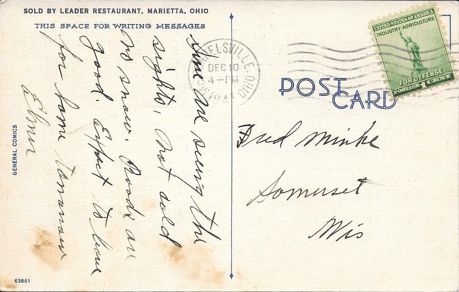 SOLD BY LEADER RESTAURANT, MARIETTA, OHIO
THIS SPACE FOR WRITING MESSAGES
are seeing the
sights. Not cold
no snow. Roads are
good. Expect to leave
for home tomorrow
Elmer
GENERAL COMICS
63861
ELSVILLE
OHIO
DEC 10
4-PM
UNITED STATES OF AMERICA
INDUSTRY AGRICULTURE
FOR DEFENSE
POSTAGE 1 CENT
POST CARD
Fred Minke
Somerset
Wis